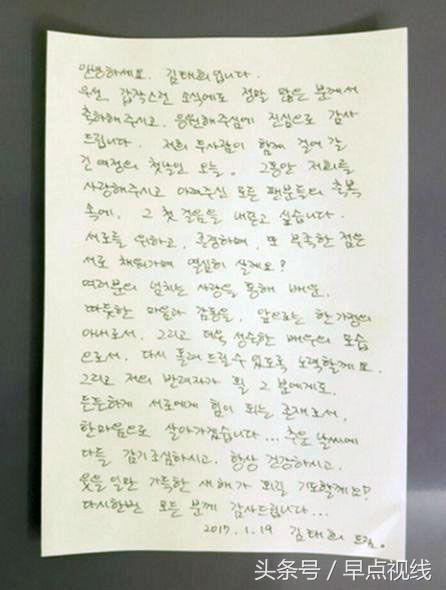 안녕하세요. 김태희입니다.
우선 갑작스런 소식에도 정말 많은 분께서
축하해주시고, 응원해주심에 진심으로 감사
드립니다. 저희 두사람이 함께 걸어 갈
긴 여정의 첫날인 오늘. 그동안 저희를
사랑해주시고 아껴주신 모든 팬분들의 축복
속에, 그 첫 걸음을 내딛고 싶습니다.
서로를 위하고, 존경하며, 또 부족한 점은
서로 채워가며 열심히 살께요!
여러분의 넘치는 사랑을 통해 배운,
따뜻한 마음과 감동을, 앞으로는 한 가정의
아내로서, 그리고 더욱 성숙한 배우의 모습
으로서, 다시 돌려드릴 수 있도록 노력할께요.
그리고 저의 반려자가 될 그 분에게도,
든든하게 서로에게 힘이 되는 존재로서,
한마음으로 살아가겠습니다... 추운 날씨에
다들 감기조심하시고, 항상 건강하시고,
웃을 일만 가득한 새해가 되길 기도할께요!
다시한번 모든 분께 감사드립니다...
2017. 1. 19 김태희 드림.
头条号 / 早点视线